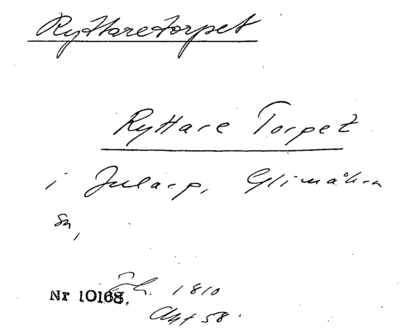 Ryttaretorpet
Ryttare Torpet
i Jularp, Glimåkra
sn,
Nr 10168. 1810
Akt 58.